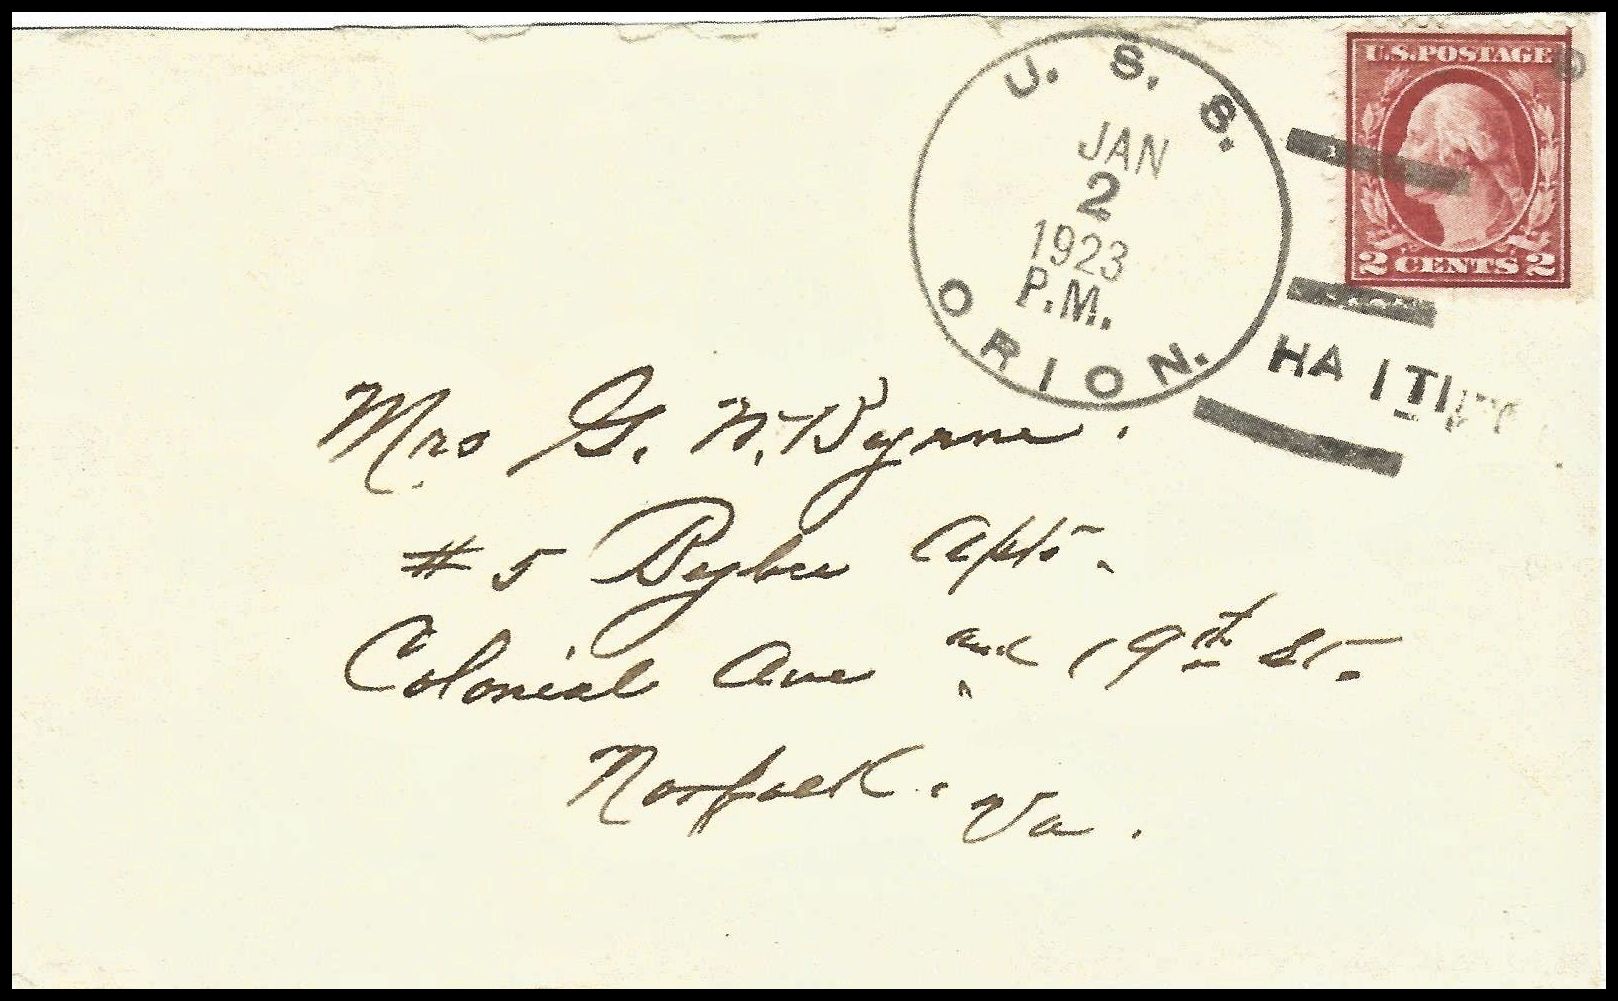 U.S.POSTAGE
2 CENTS 2
U. S. S.
JAN
2
1923
P.M.
ORION.
HAITI
Mrs G. W. Byrne.
# 5 Apts.
Colonial Ave and 19th St.
Norfolk. Va.